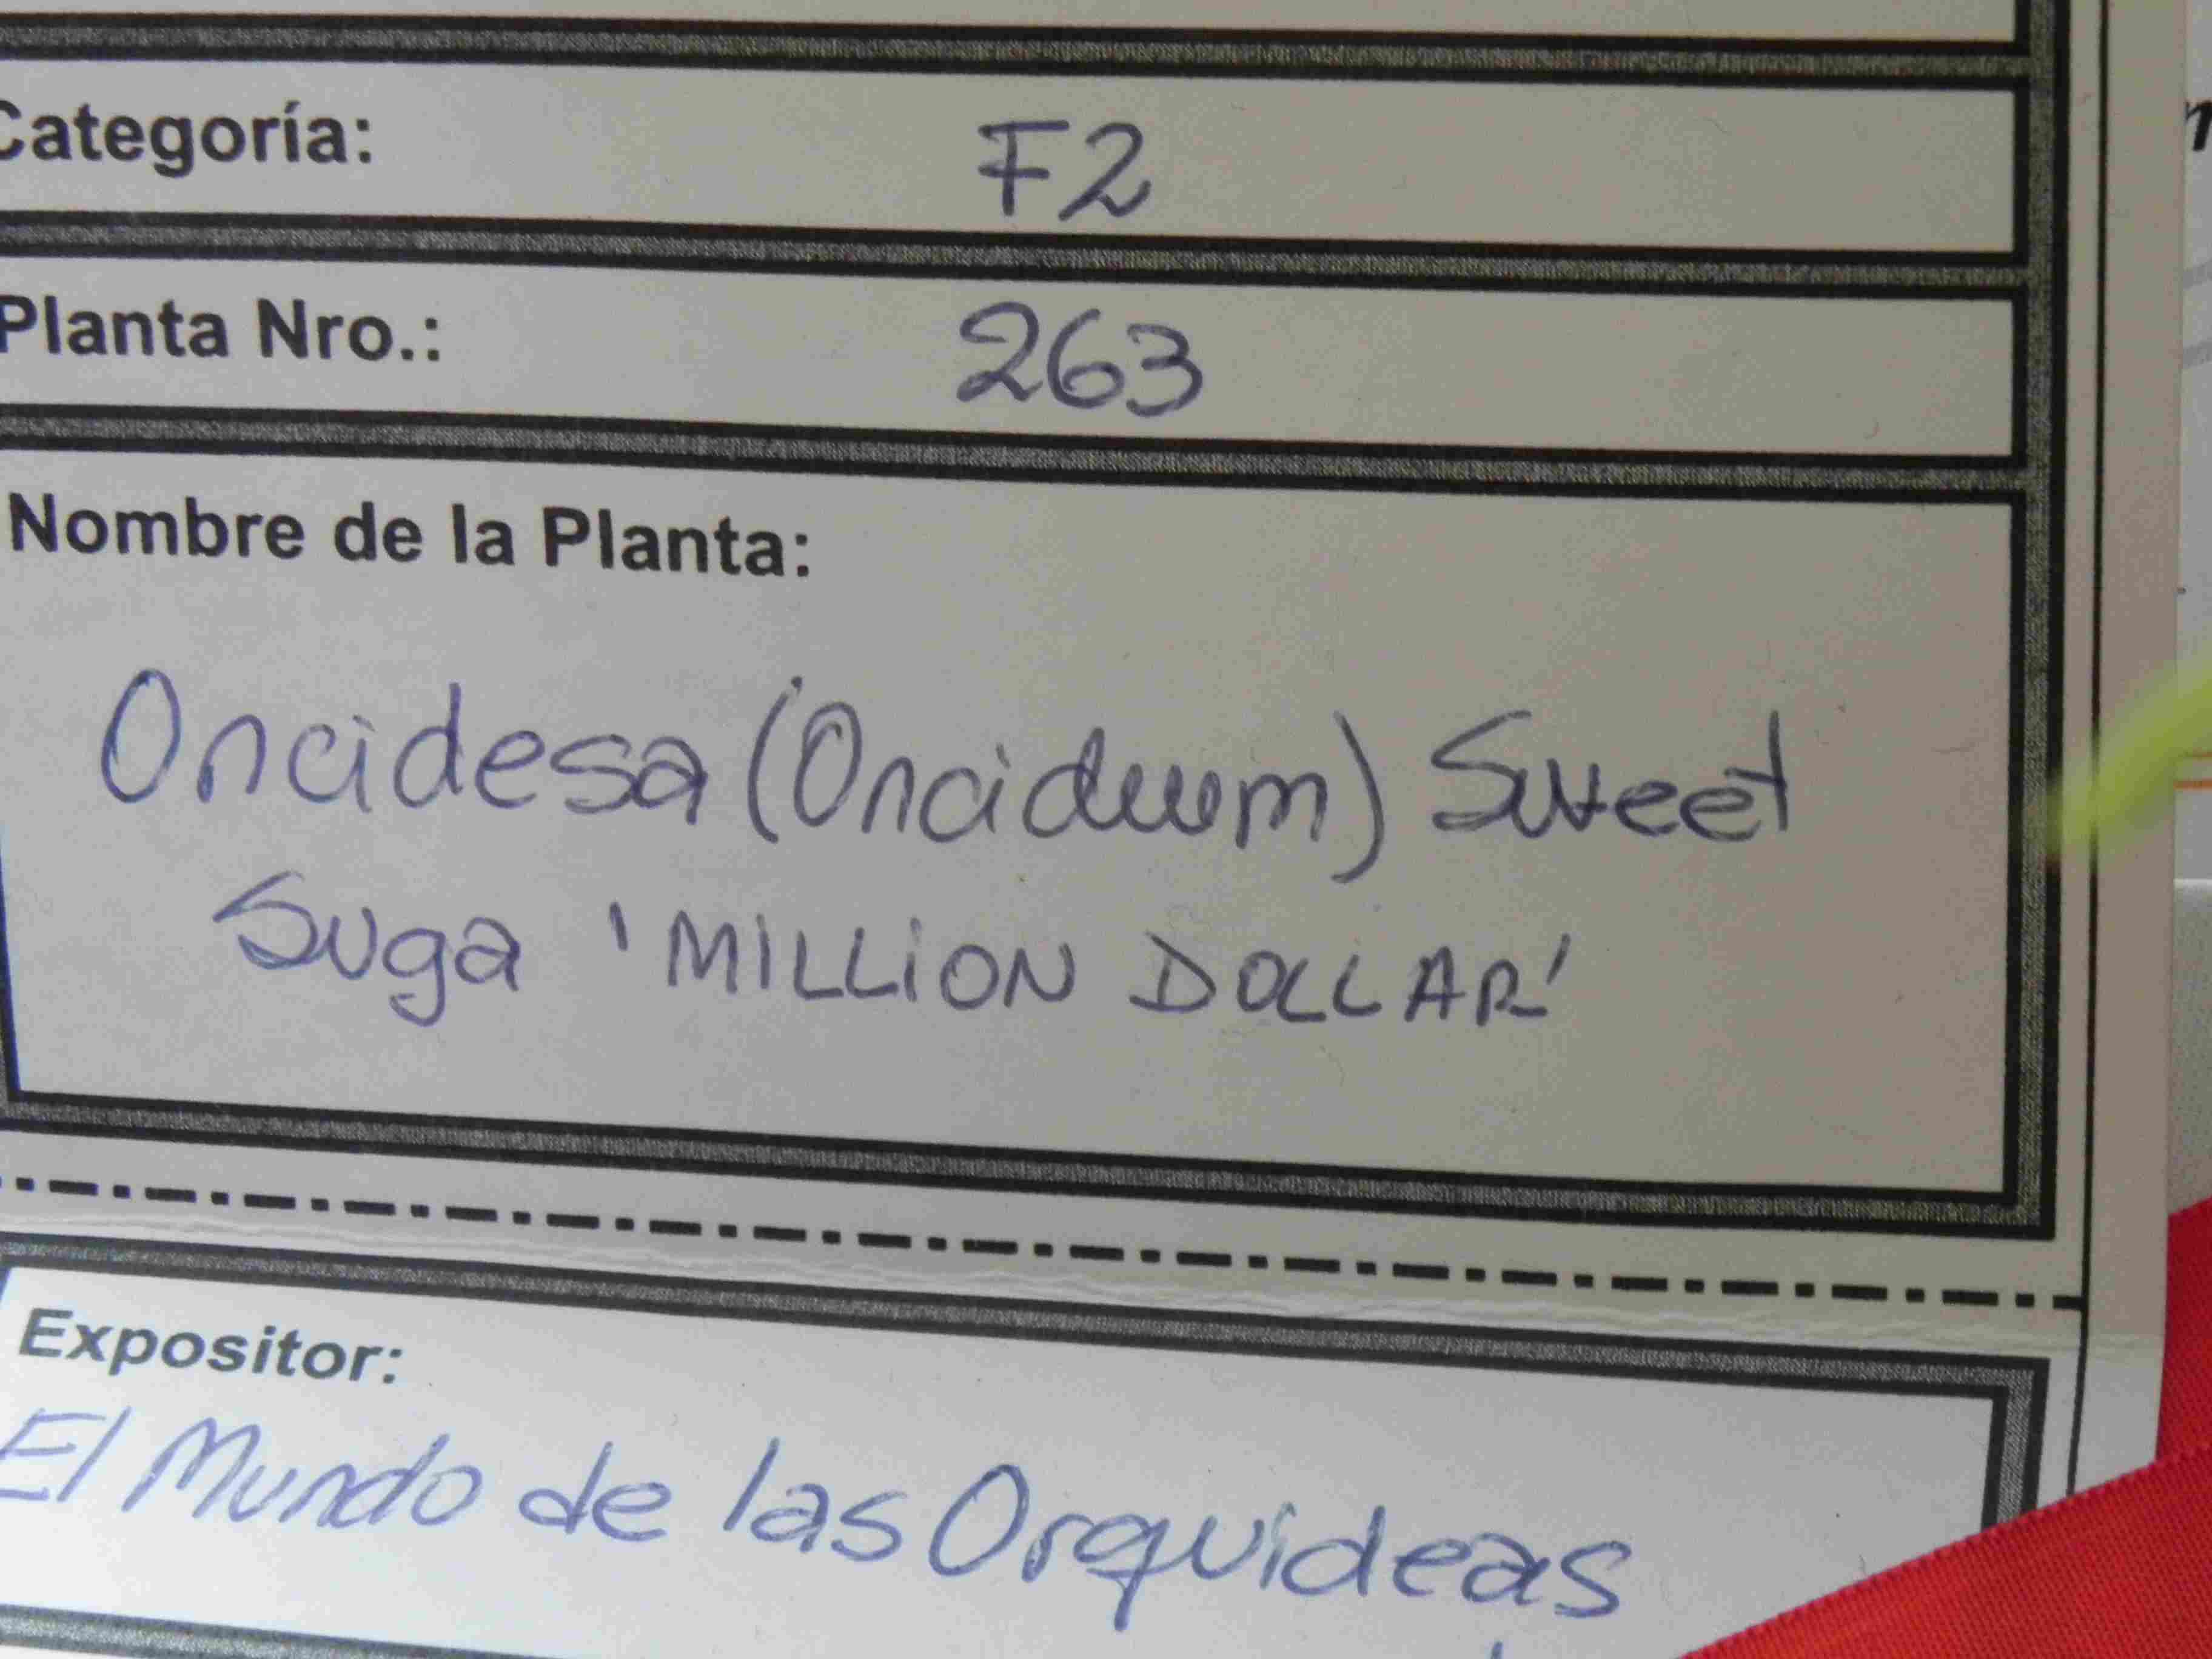 Categoría: F2
Planta Nro.: 263
Nombre de la Planta:
Oncidesa (Oncidium) Sweet
Suga 'MILLION DOLLAR'
Expositor:
El Mundo de las Orquideas